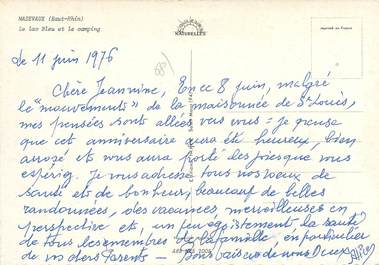 MASEVAUX (Haut-Rhin)
Le Lac Bleu et le camping
NATURELLES
imprimé en France
Le 11 juin 1976
Chère Jeannine, En ce 8 juin, malgré
le "mouvements" de la maisonnée de St Louis,
mes pensées sont allées vers vous : je pense
que cet anniversaire aura été heureux, bien
arrosé et vous aura porté les joies que vous
espériez. Je vous adresse tous nos vœux de
santé et de bonheur, beaucoup de belles
randonnées, des vacances merveilleuses en
perspective et, un peu égoïstement la santé
de tous les membres de la famille, en particulier
de vos chers Parents - Bons baisers de nous Deux